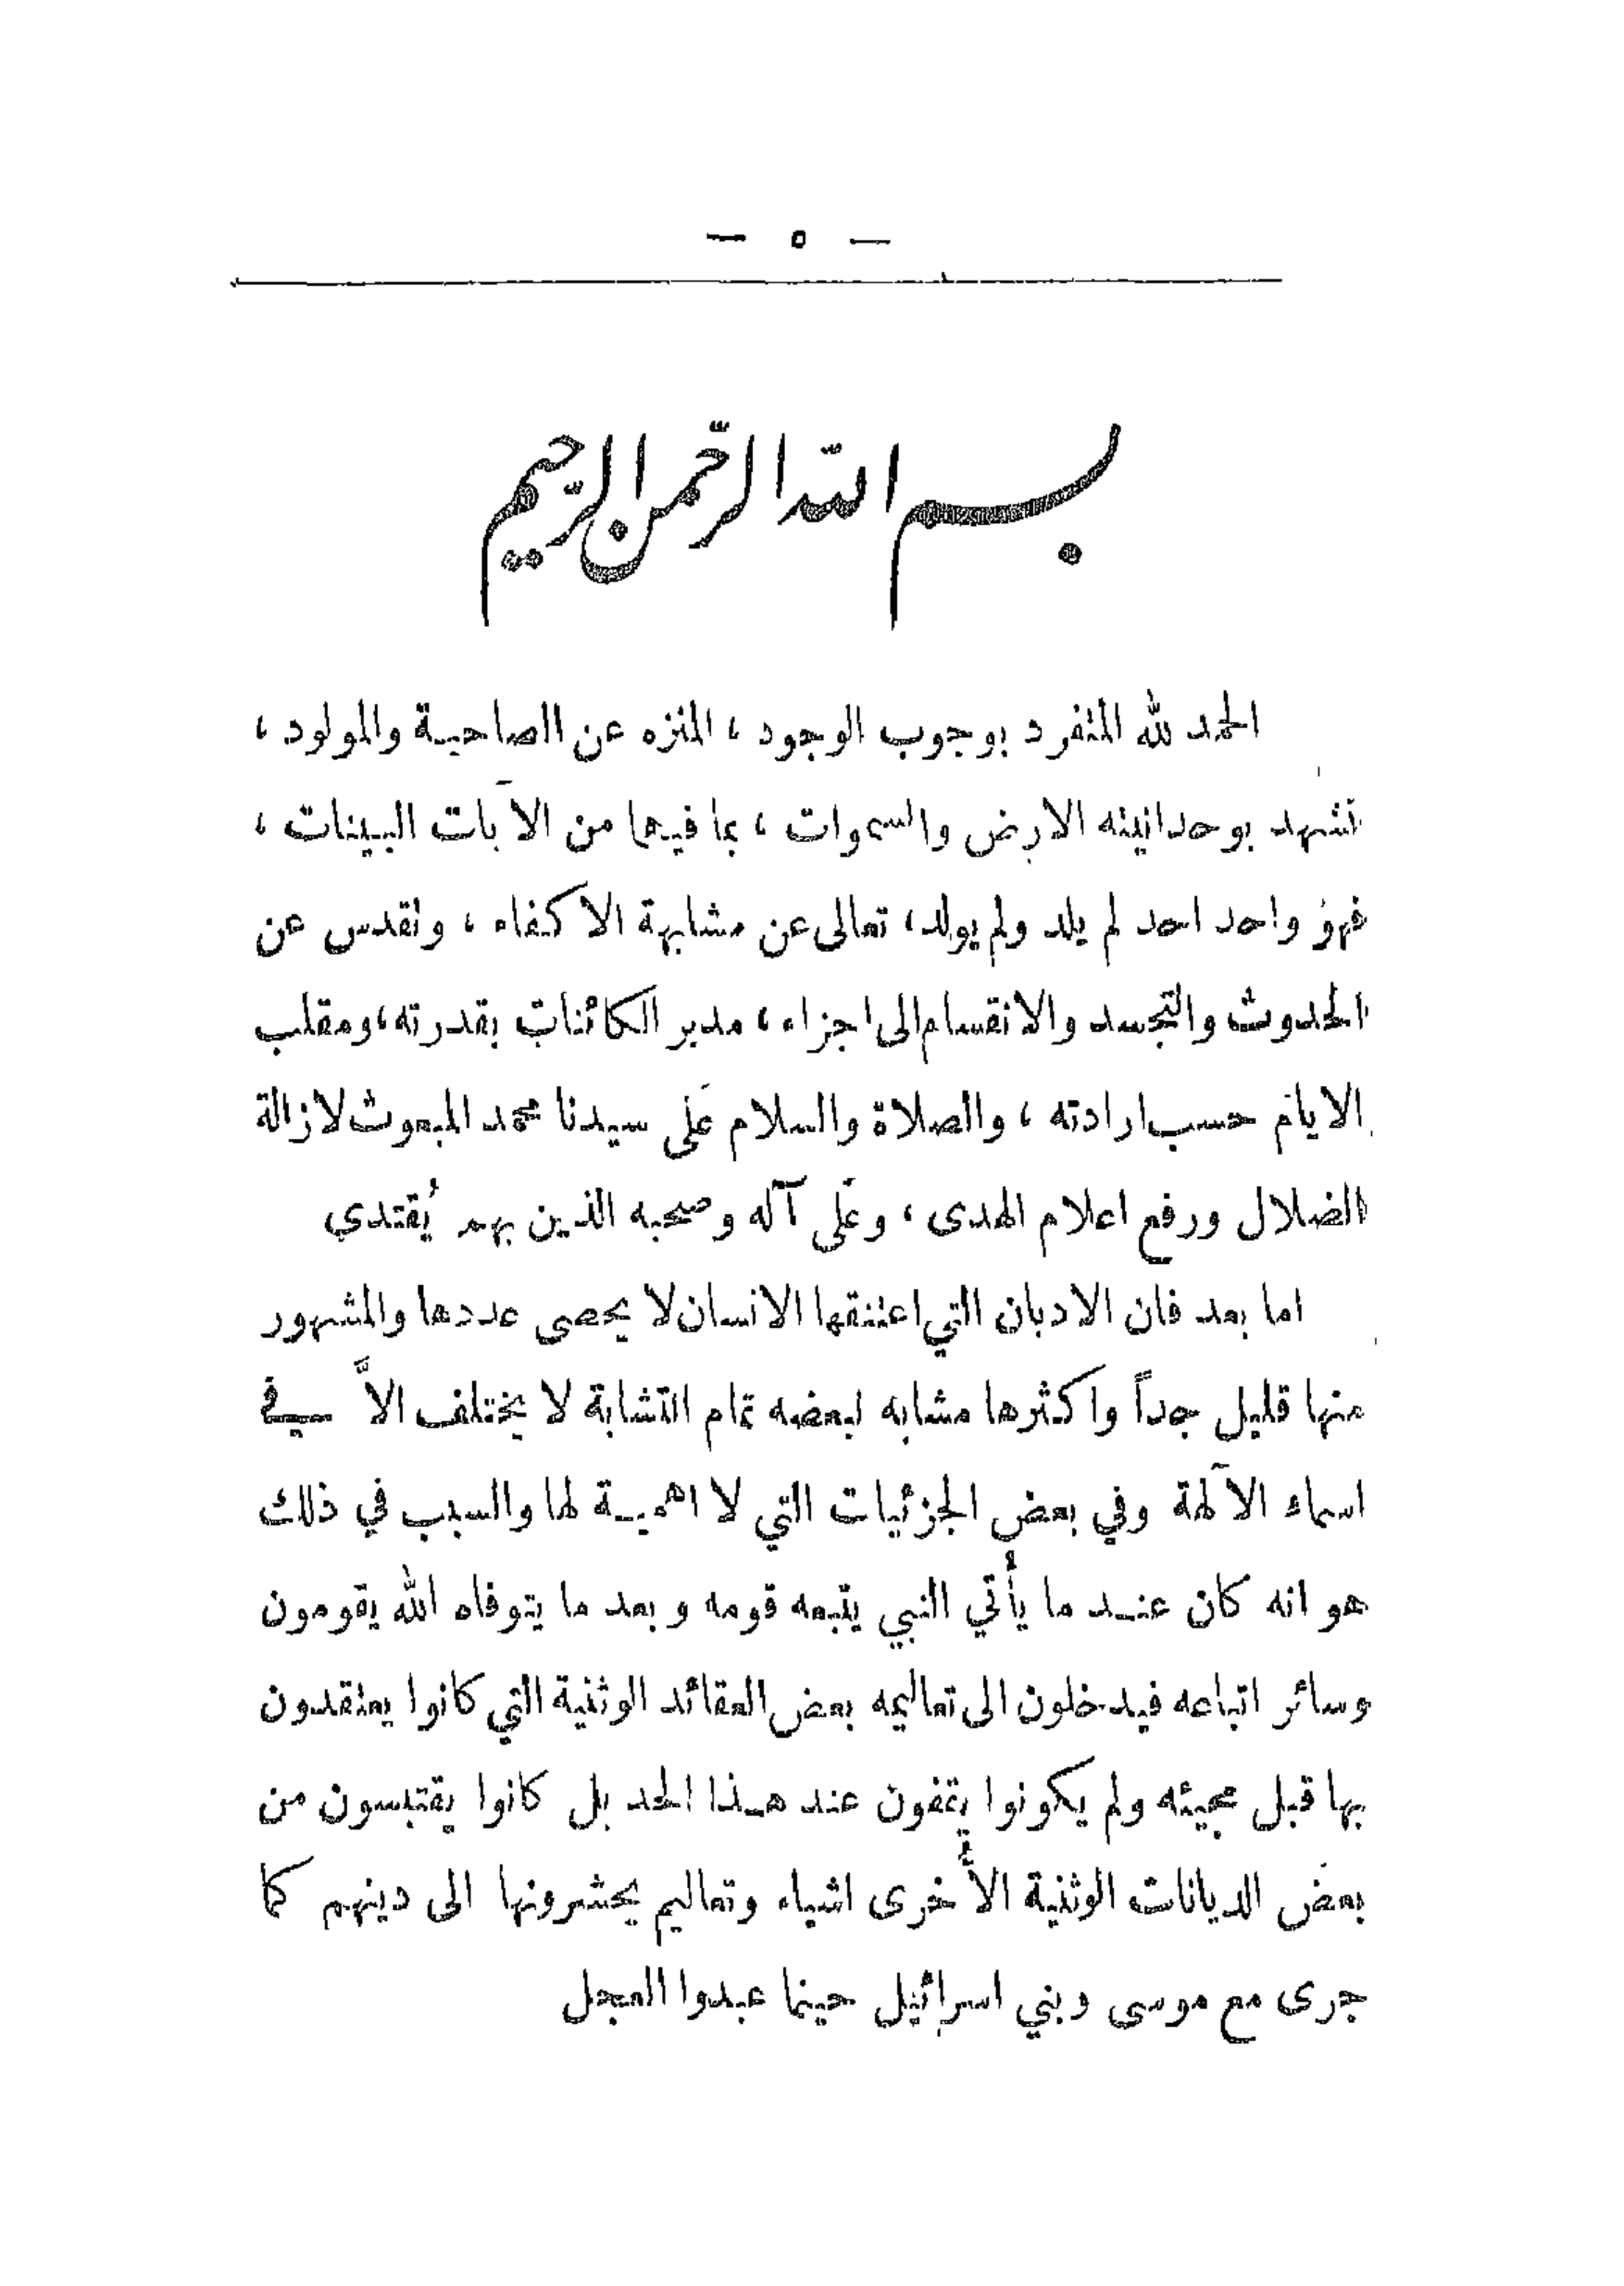 — ٥ —
بسم الله الرحمن الرحيم
الحمد لله المتفرد بوجوب الوجود ، المنزه عن الصاحبة والمولود ،
تشهد بوحدانيته الارض والسموات ، بما فيهما من الآيات البينات ،
فهو واحد احد لم يلد ولم يولد ، تعالى عن مشابهة الاكفاء ، وتقدس عن
الحدوث والتجسد والانقسام الى اجزاء ، مدبر الكائنات بقدرته ، ومقلب
الايام حسب ارادته ، والصلاة والسلام عَلى سيدنا محمد المبعوث لازالة
الضلال ورفع اعلام الهدى ، وعَلى آله وصحبه الذين بهم يُقتدي
اما بعد فان الاديان التي اعتنقها الانسان لا يحصى عددها والمشهور
منها قليل جداً واكثرها مشابه لبعضه تمام التشابة لا يختلف الاَّ في
اسماء الآلهة وفي بعض الجزئيات التي لا اهمية لها والسبب في ذلك
هو انه كان عند ما يأتي النبي يتبعه قومه وبعد ما يتوفاه الله يقومون
وسائر اتباعه فيدخلون الى تعاليمه بعض العقائد الوثنية التي كانوا يعتقدون
بها قبل مجيئه ولم يكونوا يقفون عند هذا الحد بل كانوا يقتبسون من
بعض الديانات الوثنية الأخرى اشياء وتعاليم يحشرونها الى دينهم كما
جرى مع موسى وبني اسرائيل حينما عبدوا العجل